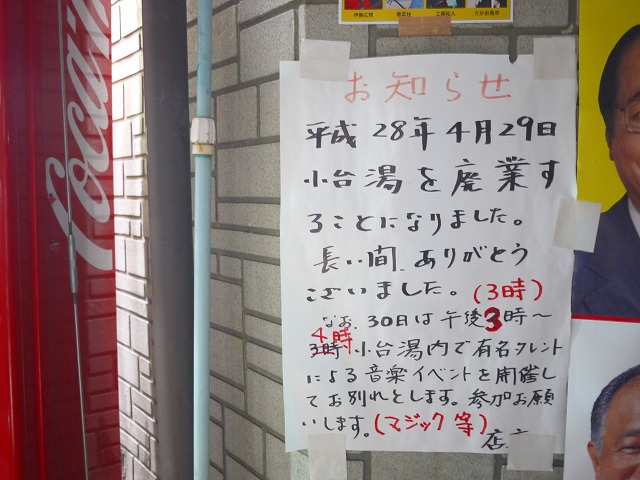 Coca
お知らせ
平成 28年 4月 29日
小台湯を廃業す
ることになりました。
長い間、ありがとう
ございました。(3時)
なお、30日は午後3時〜
4時
3時 小台湯内で有名タレント
による音楽イベントを開催し
てお別れとします。参加お願
いします。(マジック等)
店主